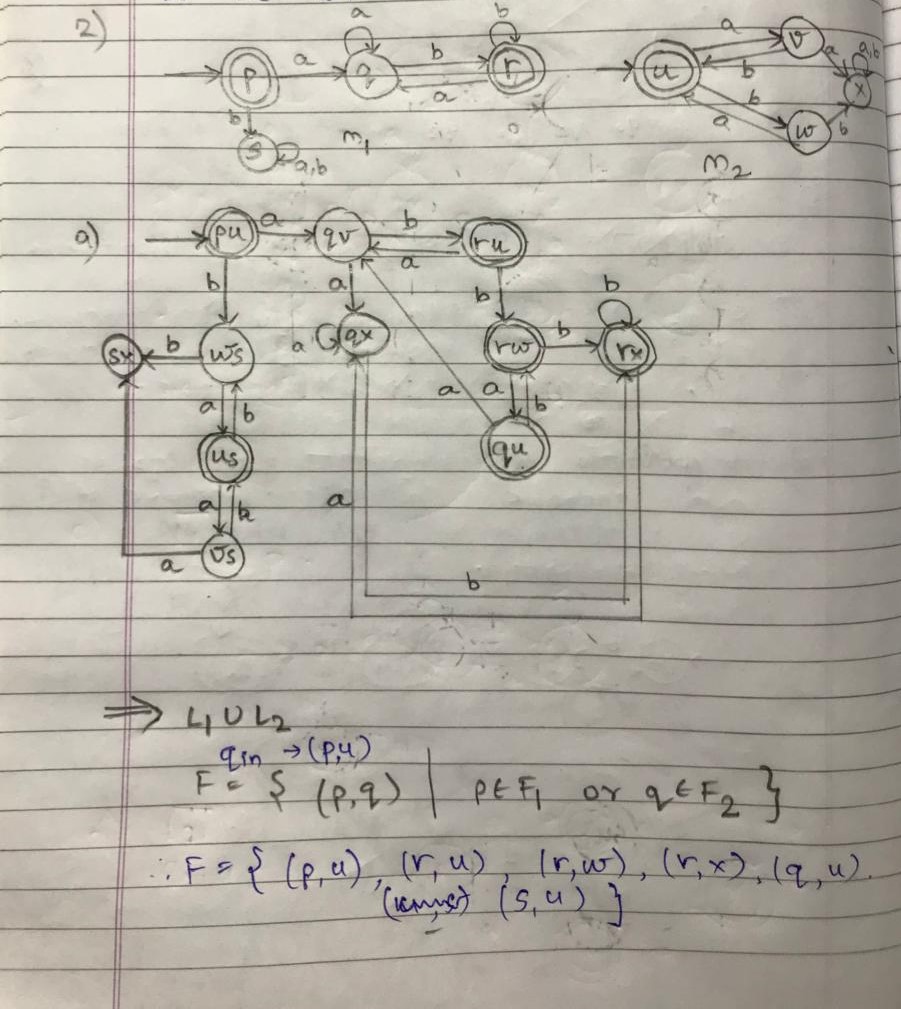 2)
a b a
p a q b r u v a a,b
a b b x
b s a,b a w b
m1
m2
a) pu a qv b ru
a
b a b b
sx b ws a qx rw b rx
a b a a b
us qu
a b a
vs
a
b
⇒ L1 ∪ L2
qin → (p,u)
F = { (p,q) | p ∈ F1 or q ∈ F2 }
∴ F = { (p,u), (r,u), (r,w), (r,x), (q,u).
(s,u) }